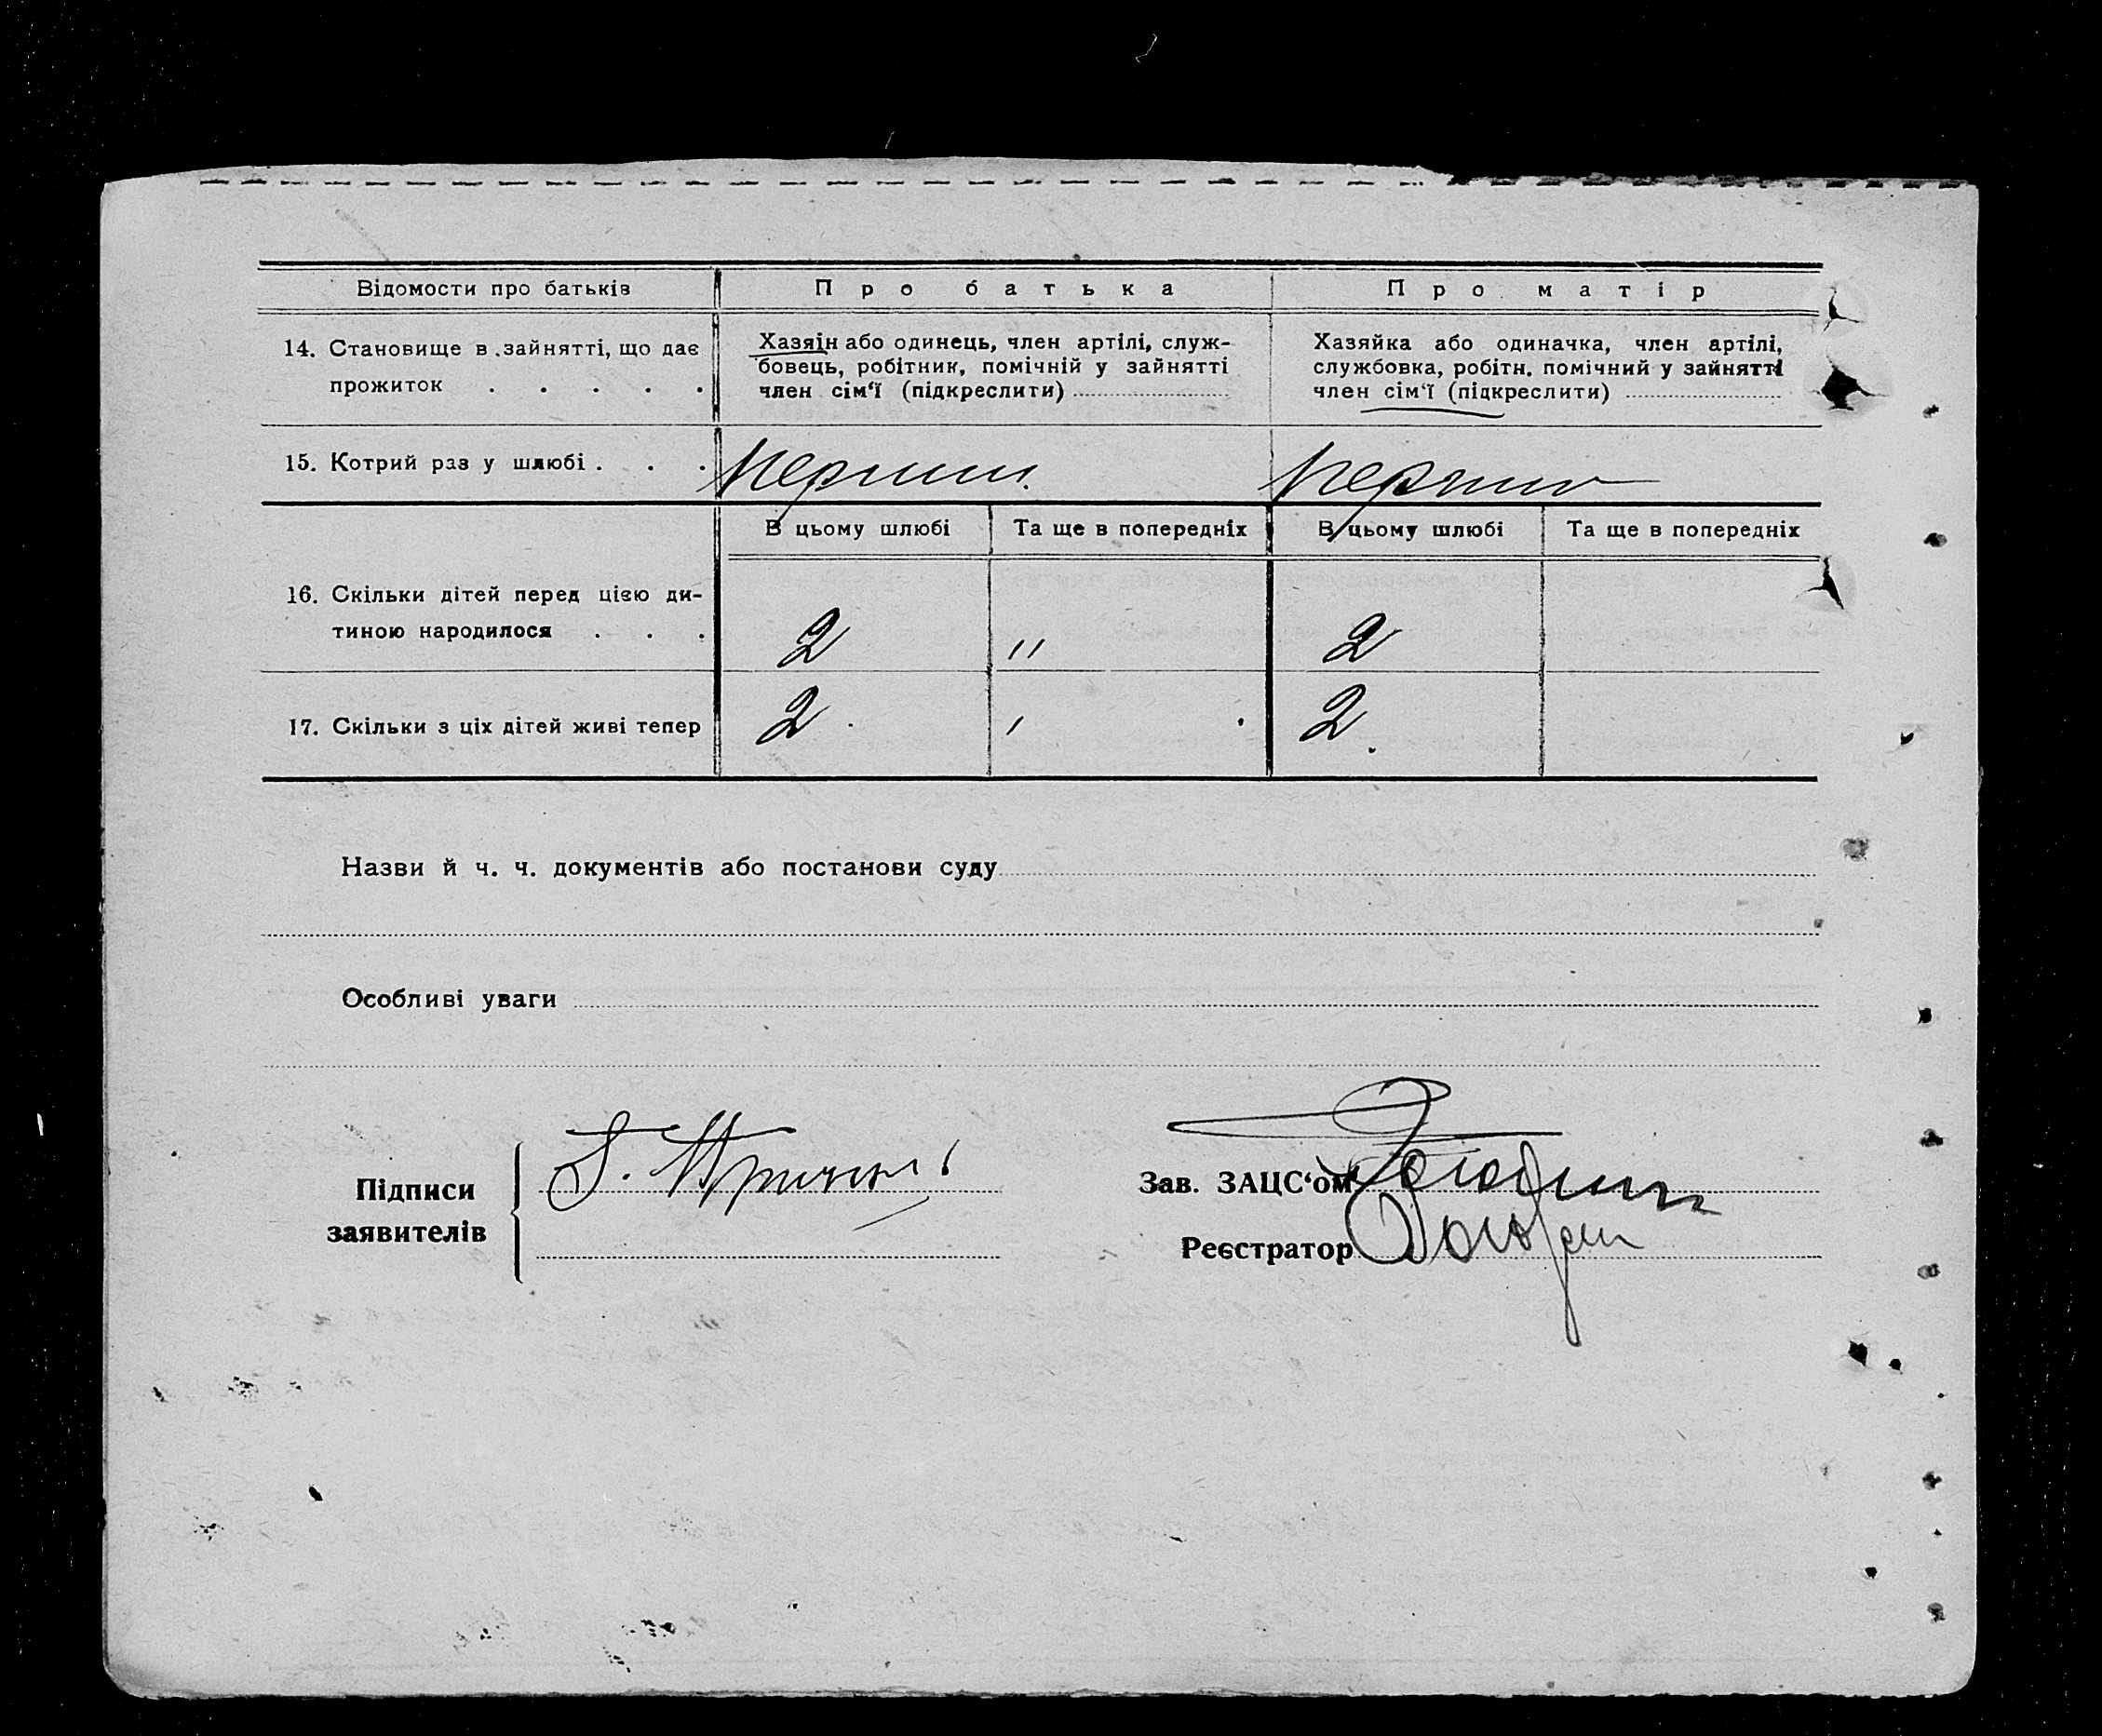 Відомости про батьків
Про батька
Про матір
14. Становище в зайнятті, що дає
прожиток . . . . .
Хазяін або одинець, член артілі, служ-
бовець, робітник, помічній у зайнятті
член сім‘ї (підкреслити)
Хазяйка або одиначка, член артілі,
службовка, робітн. помічний у зайнятті
член сім‘ї (підкреслити)
15. Котрий раз у шлюбі . . .
В цьому шлюбі
Та ще в попередніх
В цьому шлюбі
Та ще в попередніх
16. Скільки дітей перед цією ди-
тиною народилося . . .
2
"
2
17. Скільки з ціх дітей живі тепер
2
2
Назви й ч. ч. документів або постанови суду
Особливі уваги
Підписи
заявителів
Зав. ЗАЦС‘ом
Реєстратор